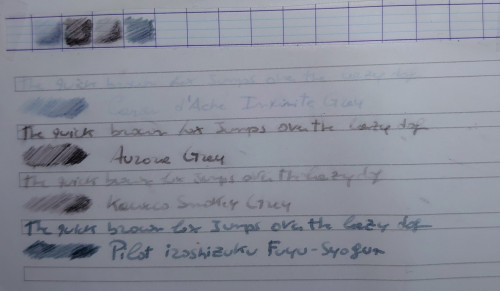 The quick brown fox jumps over the lazy dog
Caran d'Ache Infinite Grey
The quick brown fox jumps over the lazy dog
Aurora Grey
The quick brown fox jumps over the lazy dog
Kaweco Smokey Grey
The quick brown fox jumps over the lazy dog
Pilot iroshizuku Fuyu-Syogun